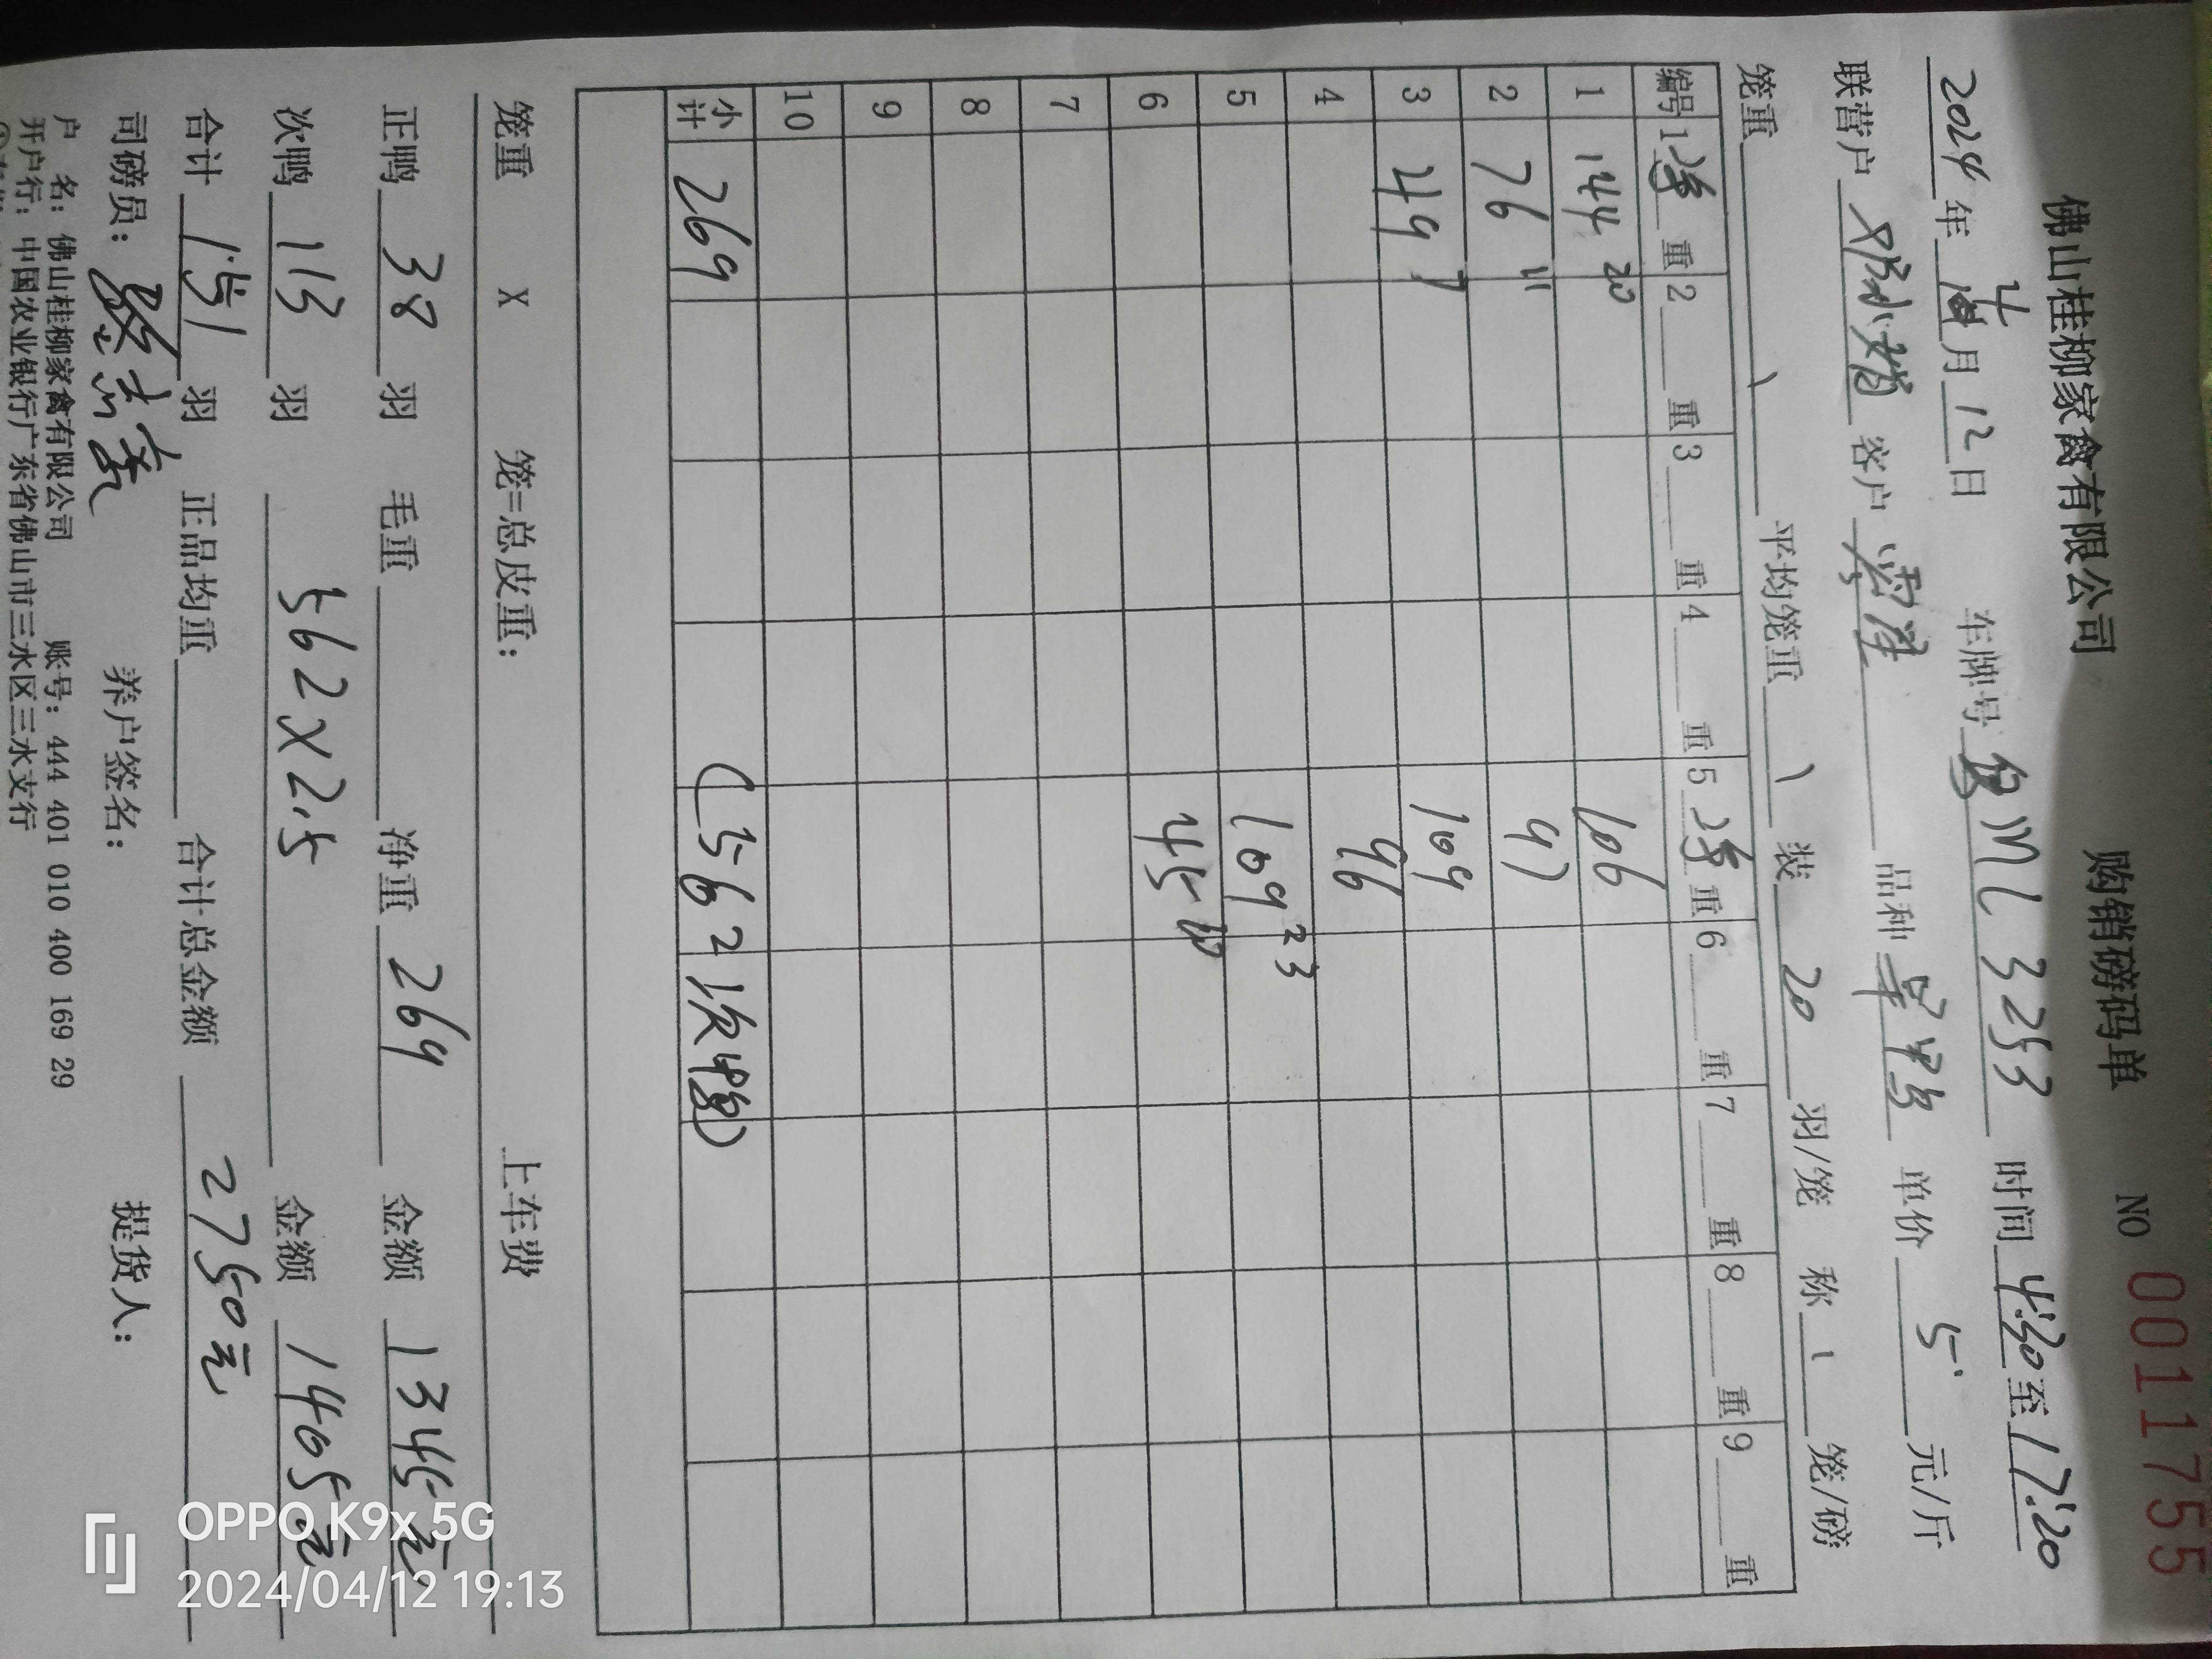 佛山桂柳家禽有限公司 购销磅码单 NO 0011755
2024年4月12日 车牌号 ML3253 时间4:30至17:20
联营户 客户 品种 单价5元/斤
笼重 平均笼重 装20羽/笼 称1笼/磅
编号 1净重 2重 3重 4重 5净重 6重 7重 8重 9重
1 144 20 106
2 76 11 97
3 49 7 109
4 96
5 109 23
6 45 10
7
8
9
10
小计 269 (562 次鸭)
笼重 X 笼=总皮重: 上车费
正鸭38羽 毛重 净重269 金额1345元
次鸭113羽 562X2.5 金额1405元
合计151羽 正品均重 合计总金额 2750元
司磅员: 养户签名: 提货人:
户 名: 佛山桂柳家禽有限公司 账号: 444 401 010 400 169 29
开户行: 中国农业银行广东省佛山市三水区三水支行
OPPO K9x 5G
2024/04/12 19:13